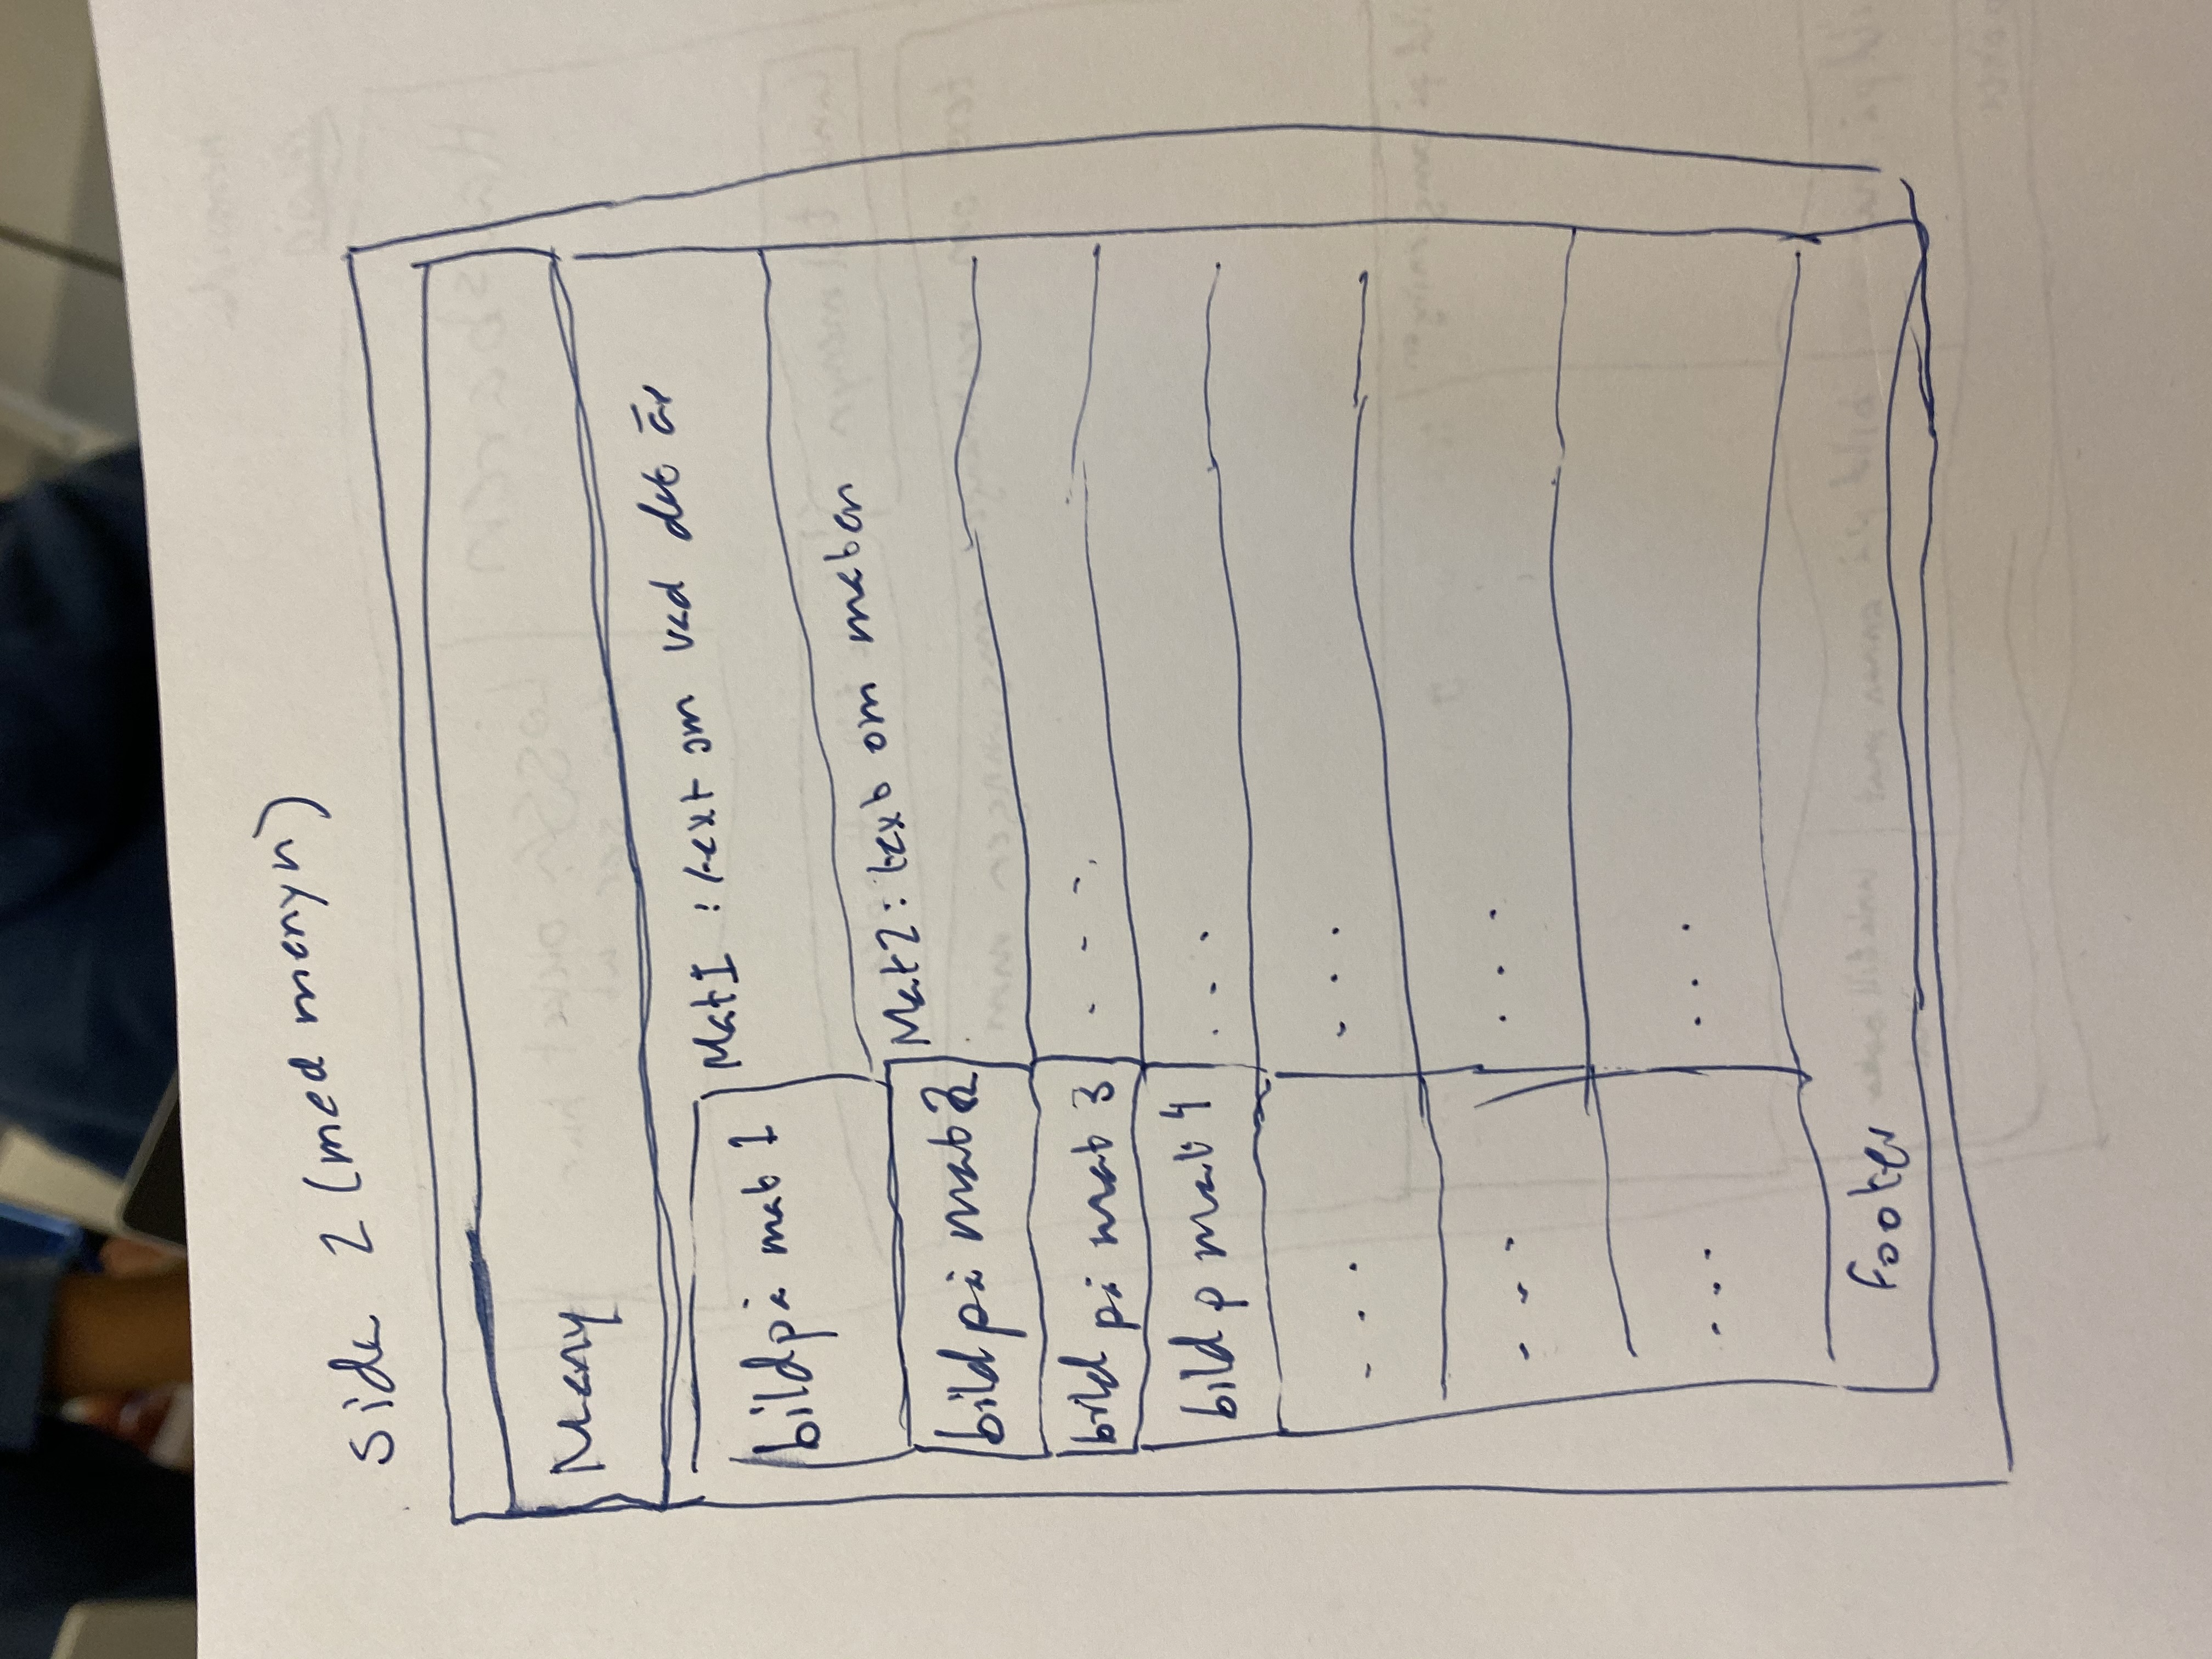 Sida 2 (med menyn)
Meny
bild på mat 1
Mat1 : text om vad det är
bild på mat 2
Mat2: text om maten
bild på mat 3
. . .
bild p mat 4
. . .
. . .
. . .
. . .
. . .
. . .
. . .
Footer